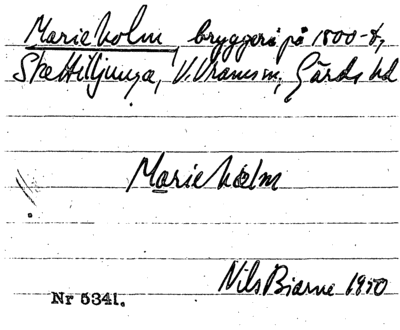 Marieholm, bryggeri på 1800-t,
Skættilljunga, V. Vram sn, Gärds hd
Marieholm
Nils Bjarne 1950
Nr 5341.